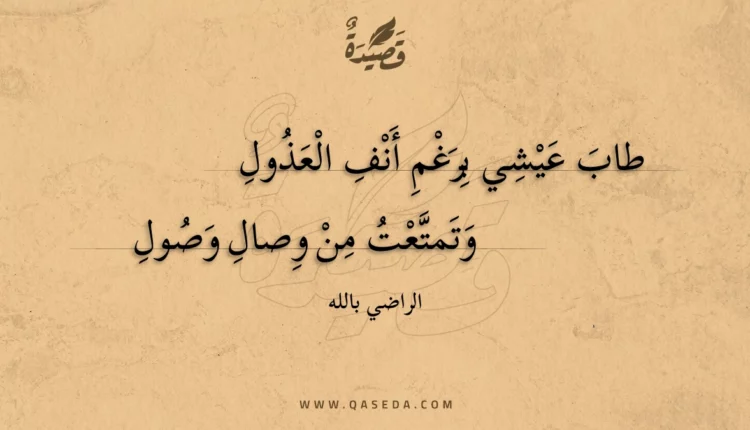 قَصِيْدَةٌ
طابَ عَيْشِي بِرَغْمِ أَنْفِ الْعَذُولِ
وَتَمتَّعْتُ مِنْ وِصالِ وَصُولِ
الراضي بالله
WWW.QASEDA.COM